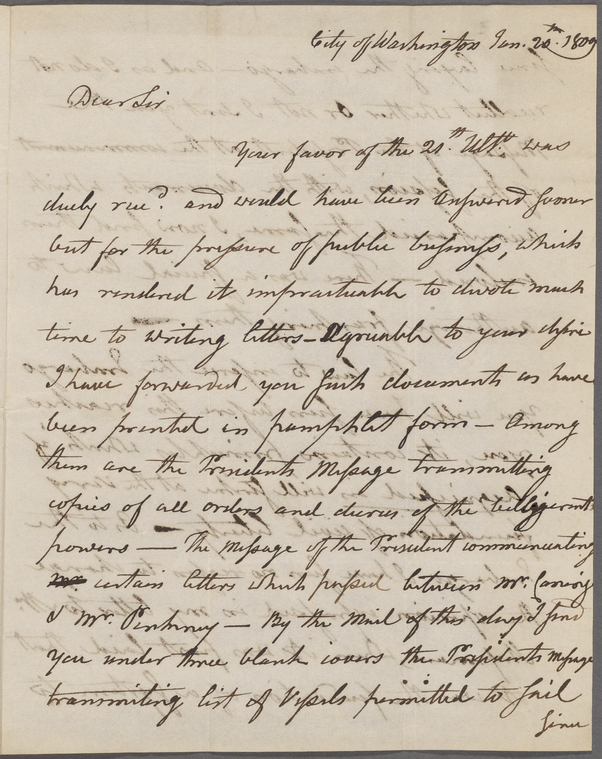 City of Washington Jan. 20th. 1809
Dear Sir
Your favor of the 21th. Ulto. was
duely recd. and would have been answered sooner
but for the pressure of public business, which
has rendered it impracticable to divote much
time to writing letters — Agreeable to your desire
I have forwarded you such documents as have
been printed in pamphlet form — Among
them are the Presidents Message transmitting
copies of all orders and decrees of the belligerent
powers — The Message of the President communicating
certain letters which passed between Mr. Canning
& Mr. Pinkney — By the Mail of this day I send
you under three blank covers the Presidents Message
transmitting list of Vessels permitted to sail
since